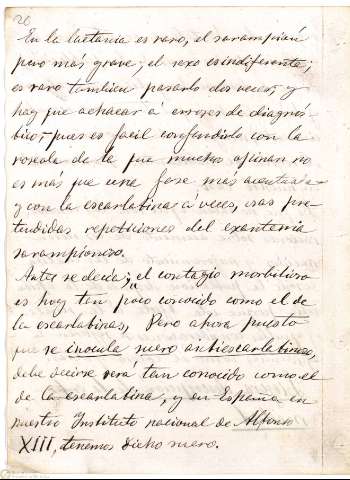 20
En la lactancia es raro, el sarampión
pero más grave; el sexo es indiferente;
es raro tambien pasarlo dos veces, y
hay que achacar á errores de diagnós-
tico, pues es facil confundirlo con la
roseola de la que muchos opinan no
es más que una fase más acentuada
y con la escarlatina a veces, esas pre-
tendidas repeticiones del exantema
sarampionoso.
Antes se decia; "el contagio morbiloso
es hoy tan poco conocido como el de
la escarlatina, Pero ahora puesto
que se inocula suero antiescarlatinoso,
debe decirse sera tan conocido como el
de la escarlatina, y en España en
nuestro Instituto nacional de Alfonso
XIII, tenemos dicho suero.